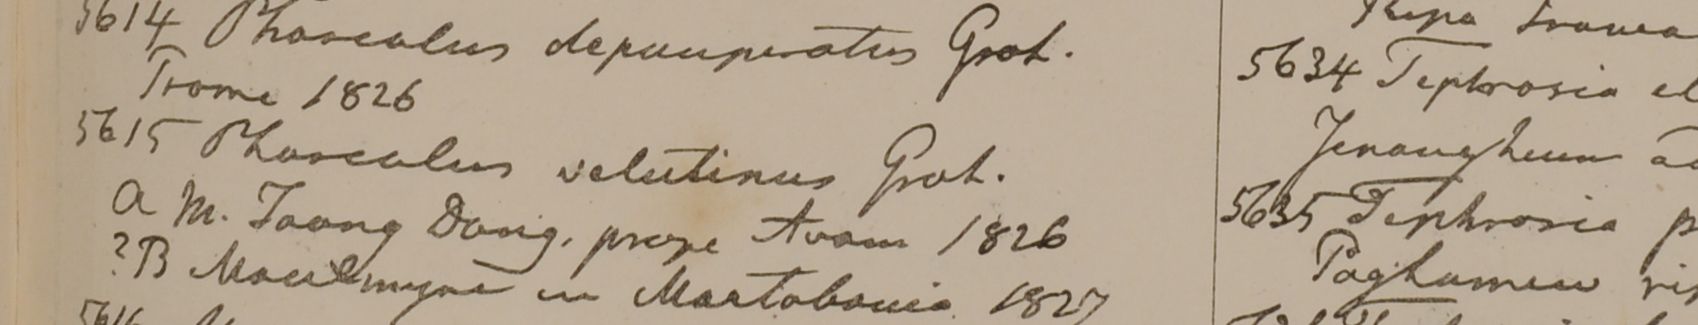 5614 Phaseolus depauperatus Grah.
Prome 1826
5615 Phaseolus velutinus Grah.
a M. Taong Dong, prope Avam 1826
?B Moulmyne in Martabania 1827
5616
Ripa
5634 Tephrosia el
Yenangheum ad
5635 Tephrosia p
Paghamew rip